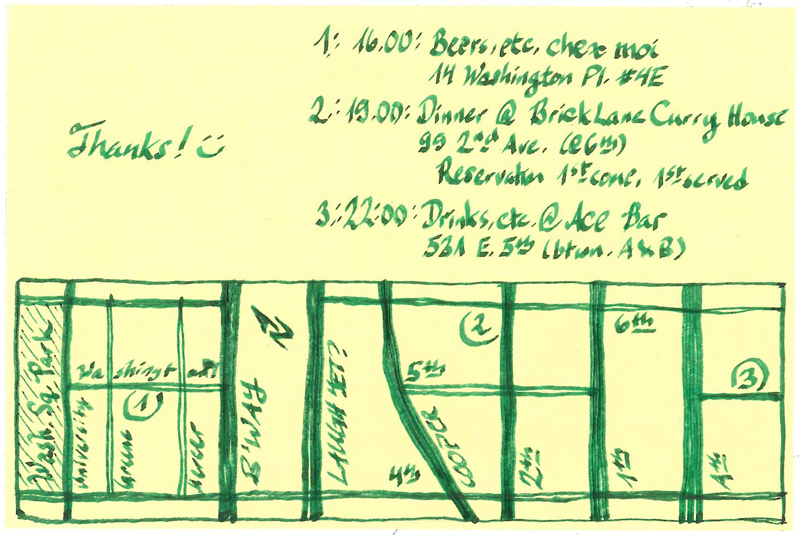 1: 16.00: Beers, etc. chez moi
14 Washington Pl. #4E
2: 19.00: Dinner @ Brick Lane Curry House
99 2nd Ave. (@6th)
Reservation 1st come, 1st served
3: 22:00: Drinks, etc. @ Ace Bar
531 E. 5th (btwn. A & B)
Thanks! :)
Wash. Sq. Park
Washingt
University
Greene
Mercer
1
B'WAY
N
LAUGHYET?
4th
5th
COOPER
2
2nd
6th
1th
3